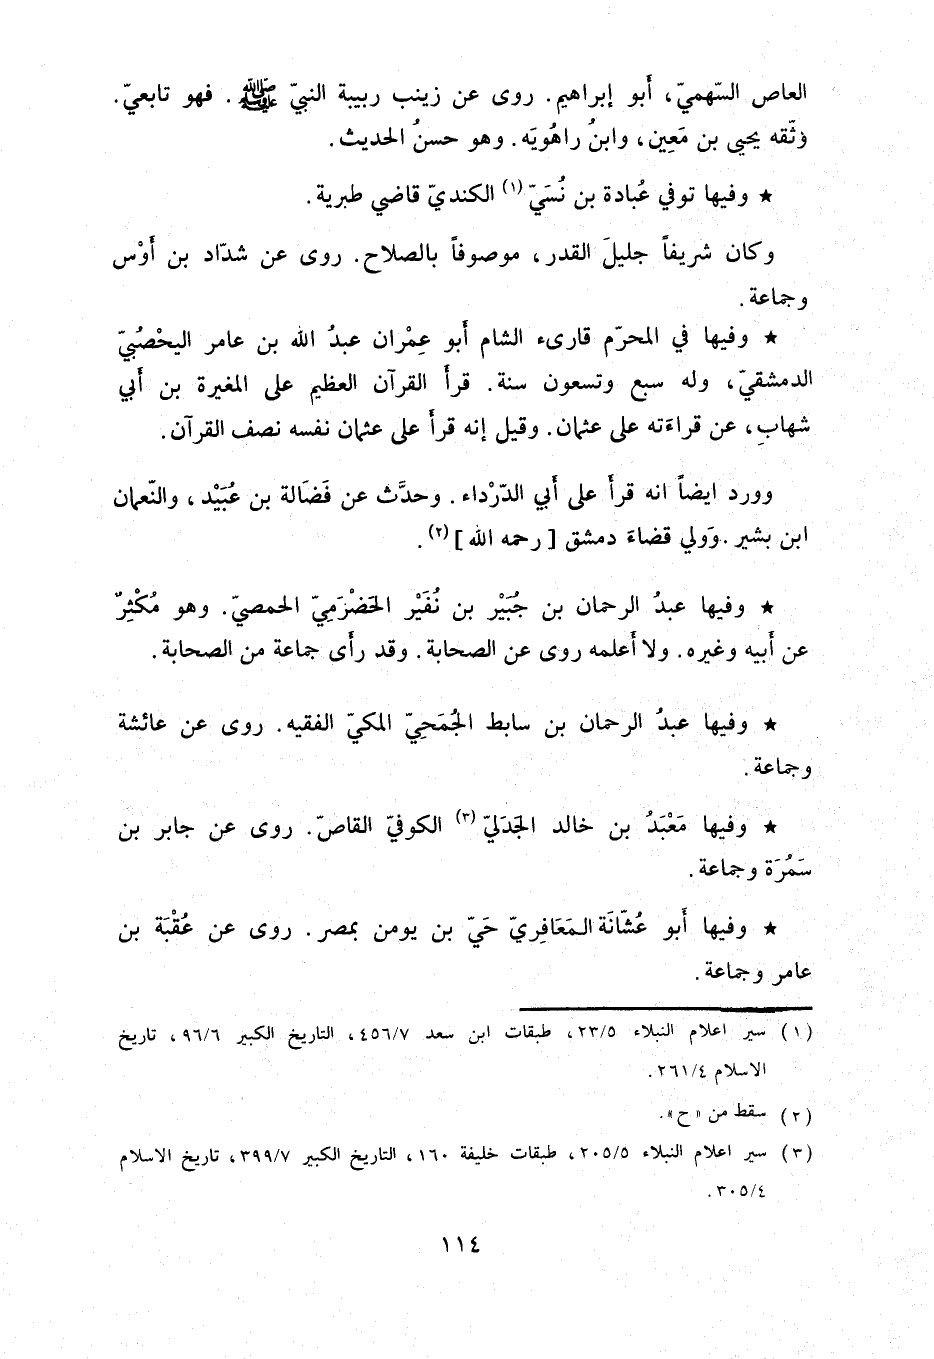 العاص السّهميّ، أَبو إبراهيم. روى عن زينب ربيبة النبيّ ﷺ. فهو تابعيّ.
وثّقه يحيى بن مَعِين، وابنُ راهُويَه. وهو حسنُ الحديث.
★ وفيها توفي عُبادة بن نُسَيّ (١) الكنديّ قاضي طبرية.
وكان شريفاً جليلَ القدر، موصوفاً بالصلاح. روى عن شدّاد بن أَوْس
وجماعة.
★ وفيها في المحرّم قارىء الشام أَبو عِمْران عبدُ الله بن عامر اليحْصُبيّ
الدمشقيّ، وله سبع وتسعون سنة. قرأَ القرآن العظيم على المغيرة بن أَبي
شهاب، عن قراءَته على عثمان. وقيل إنه قرأَ على عثمان نفسه نصف القرآن.
وورد ايضاً انه قرأَ على أَبي الدّرْداء. وحدَّث عن فَضَالة بن عُبَيْد، والنّعمان
ابن بشير. وَولي قضاءَ دمشق [ رحمه الله ] (٢).
★ وفيها عبدُ الرحمان بن جُبَيْر بن نُفَيْر الحَضْرَميّ الحمصيّ. وهو مُكْثِرٌ
عن أَبيه وغيره. ولا أَعلمه روى عن الصحابة. وقد رأَى جماعة من الصحابة.
★ وفيها عبدُ الرحمان بن سابط الجُمَحِيّ المكيّ الفقيه. روى عن عائشة
وجماعة.
★ وفيها مَعْبَدُ بن خالد الجَدَليّ (٣) الكوفيّ القاصّ. روى عن جابر بن
سَمُرَة وجماعة.
★ وفيها أَبو عُشّانَة المَعَافِريّ حَيّ بن يومن بمصر. روى عن عُقْبَة بن
عامر وجماعة.
(١) سير اعلام النبلاء ٢٣/٥، طبقات ابن سعد ٤٥٦/٧، التاريخ الكبير ٩٦/٦، تاريخ
الاسلام ٢٦١/٤.
(٢) سقط من «ح».
(٣) سير اعلام النبلاء ٢٠٥/٥، طبقات خليفة ١٦٠، التاريخ الكبير ٣٩٩/٧، تاريخ الاسلام
٣٠٥/٤.
١١٤